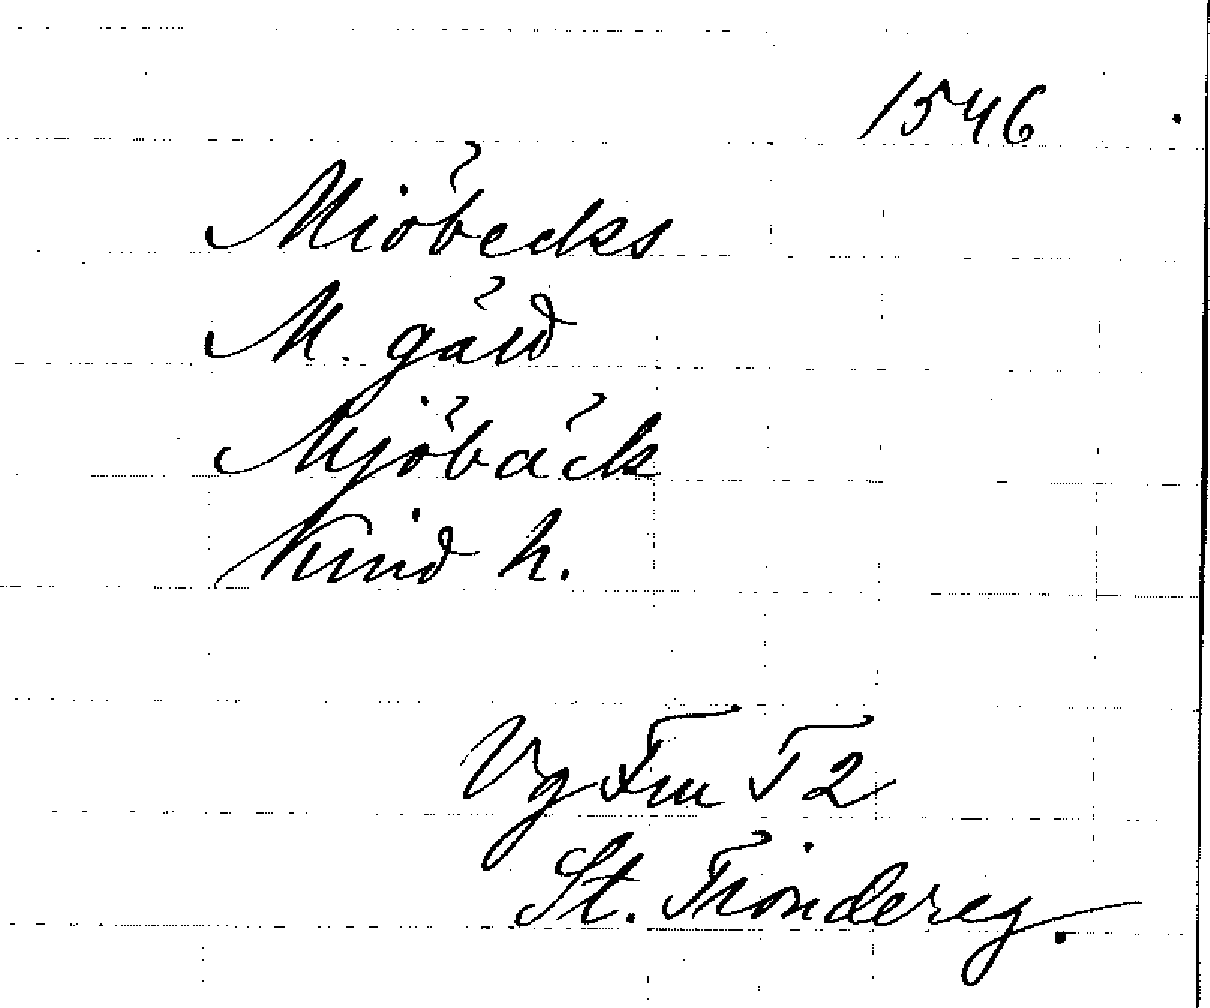 1546
Miöbecks
M. gård
Mjöbäck
Kind h.
Vg Fm T2
St. Tiondereg.